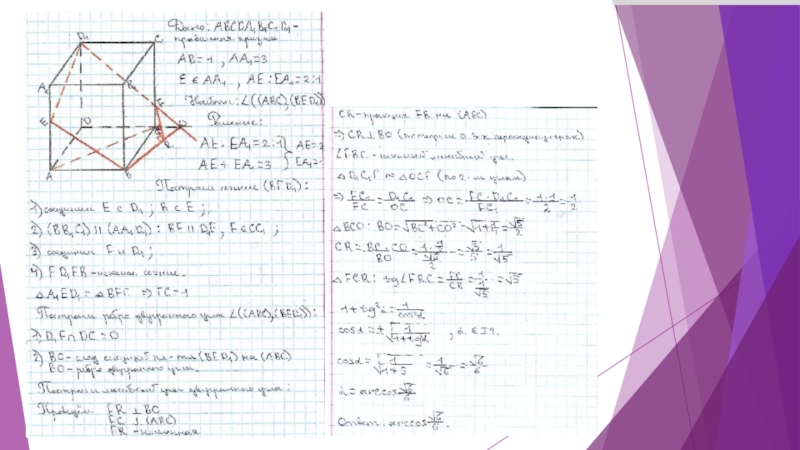 Дано: ABCDA₁B₁C₁D₁ -
правильная призма
AB=1, AA₁=3
E ∈ AA₁, AE:EA₁=2:1
Найти: ∠((ABC),(BED₁))
Решение:
AE:EA₁=2:1
AE+EA₁=3
AE=2
EA₁=1
Построим сечение (BED₁):
1) соединим E с D₁; B с E;
2) (BB₁C₁) || (AA₁D₁): BF || D₁E, F ∈ CC₁;
3) соединим F и D₁;
4) ED₁FB - искомое сечение.
△A₁ED₁ = △BFC ⇒ FC=1
Построим ребро двугранного угла ∠((ABC),(BED₁)):
1) D₁F∩DC=O
2) BO - след секущей пл-ти (BED₁) на (ABC)
BO - ребро двугранного угла.
Построим линейный угол двугранного угла:
Проведём FR ⊥ BO
FC ⊥ (ABC)
FR - наклонная
CR - проекция FR на (ABC)
⇒ CR ⊥ BO (по теореме о 3-х перпендикулярах)
∠FRC - искомый линейный угол.
△D₁C₁F ∾ △OCF (по 2-м углам)
⇒ FC₁/FC = D₁C₁/OC ⇒ OC = FC·D₁C₁/FC₁ = 1·1/2 = 1/2
△BCO: BO=√BC²+CO² = √1+1/4 = √5/2
CR = BC·CO/BO = 1/√5
△FCR: tg∠FRC = FC/CR = 1/(1/√5) = √5
1+tg²α = 1/cos²α
cosα = ±√1/(1+tg²α)
cosα = √1/(1+5) = 1/√6 = √6/6
α = arccos √6/6
Ответ: arccos √6/6.